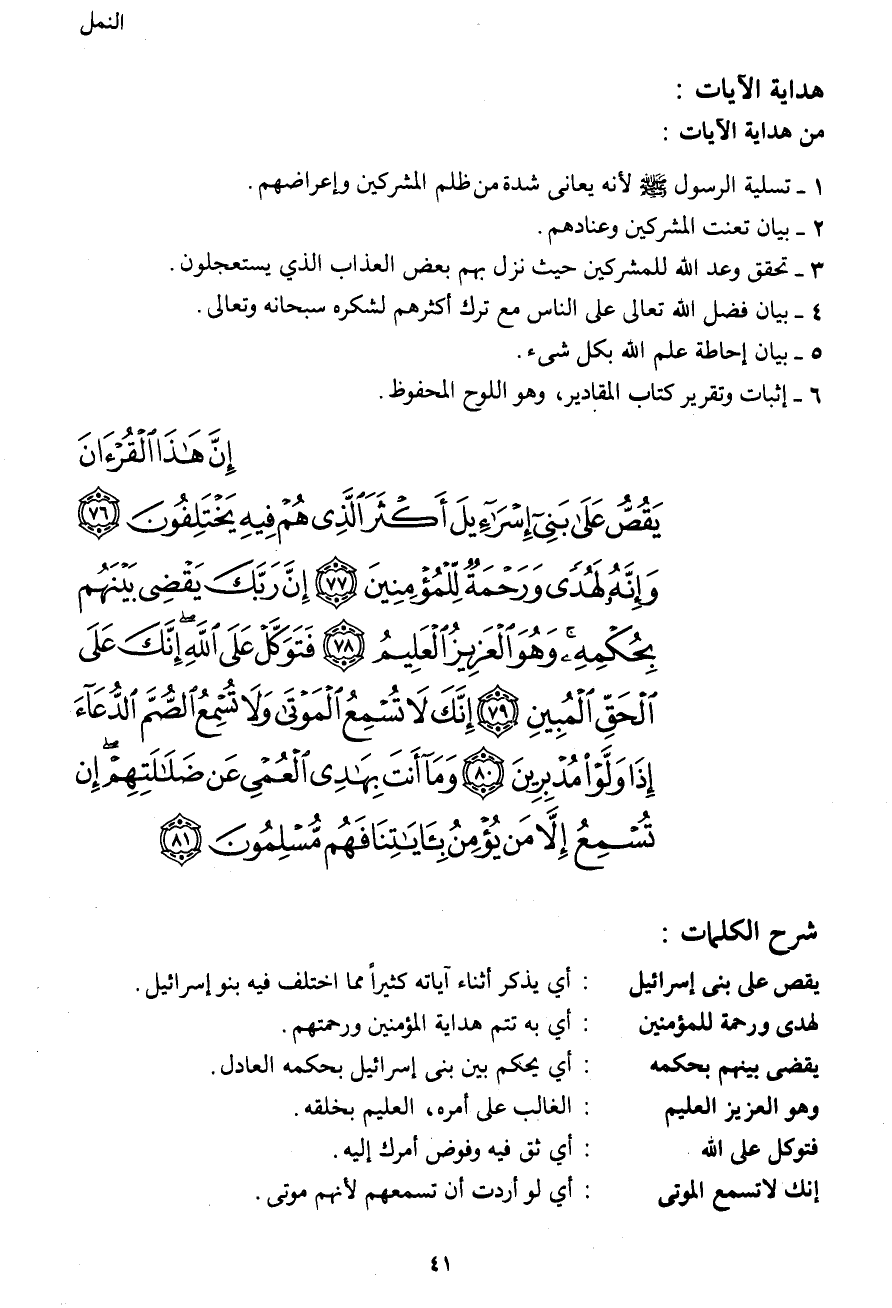 النمل
هداية الآيات :
من هداية الآيات :
١ ـ تسلية الرسول ﷺ لأنه يعانى شدة من ظلم المشركين وإعراضهم.
٢ ـ بيان تعنت المشركين وعنادهم.
٣ ـ تحقق وعد الله للمشركين حيث نزل بهم بعض العذاب الذي يستعجلون.
٤ ـ بيان فضل الله تعالى على الناس مع ترك أكثرهم لشكره سبحانه وتعالى.
٥ ـ بيان إحاطة علم الله بكل شىء.
٦ ـ إثبات وتقرير كتاب المقادير، وهو اللوح المحفوظ.
إِنَّ هَٰذَا ٱلْقُرْءَانَ
يَقُصُّ عَلَىٰ بَنِىٓ إِسْرَٰٓءِيلَ أَكْثَرَ ٱلَّذِى هُمْ فِيهِ يَخْتَلِفُونَ ٧٦
وَإِنَّهُۥ لَهُدًى وَرَحْمَةٌ لِّلْمُؤْمِنِينَ ٧٧ إِنَّ رَبَّكَ يَقْضِى بَيْنَهُم
بِحُكْمِهِۦ ۚ وَهُوَ ٱلْعَزِيزُ ٱلْعَلِيمُ ٧٨ فَتَوَكَّلْ عَلَى ٱللَّهِ ۖ إِنَّكَ عَلَى
ٱلْحَقِّ ٱلْمُبِينِ ٧٩ إِنَّكَ لَا تُسْمِعُ ٱلْمَوْتَىٰ وَلَا تُسْمِعُ ٱلصُّمَّ ٱلدُّعَآءَ
إِذَا وَلَّوْا۟ مُدْبِرِينَ ٨٠ وَمَآ أَنتَ بِهَٰدِى ٱلْعُمْىِ عَن ضَلَٰلَتِهِمْ ۖ إِن
تُسْمِعُ إِلَّا مَن يُؤْمِنُ بِـَٔايَٰتِنَا فَهُم مُّسْلِمُونَ ٨١
شرح الكلمات :
يقص على بنى إسرائيل : أي يذكر أثناء آياته كثيراً مما اختلف فيه بنو إسرائيل.
لهدى ورحمة للمؤمنين : أي به تتم هداية المؤمنين ورحمتهم.
يقضى بينهم بحكمه : أي يحكم بين بنى إسرائيل بحكمه العادل.
وهو العزيز العليم : الغالب على أمره، العليم بخلقه.
فتوكل على الله : أي ثق فيه وفوض أمرك إليه.
إنك لاتسمع الموتى : أي لو أردت أن تسمعهم لأنهم موتى.
٤١